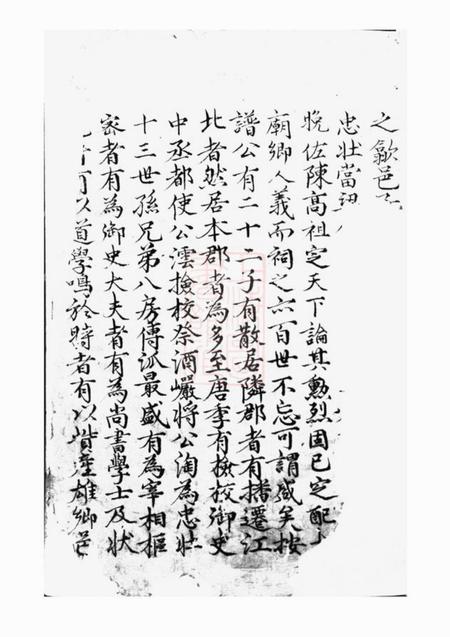 之歙邑
忠壯當
晚佐陳高祖定天下論其勲烈固已定配
廟鄉人義而祠之亦百世不忘可謂盛矣按
譜公有二十二子有散居隣郡者有播遷江
北者然居本郡者為多至唐季有檢校御史
中丞都使公澐檢校祭酒巖將公淘為忠壯
十三世孫兄弟八房傳派最盛有為宰相樞
密者有為御史大夫者有為尚書學士及狀
可以道學鳴於時者有以貲產雄鄉邑